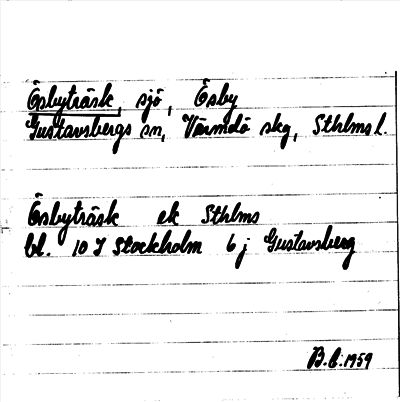 Ösbyträsk, sjö, Ösby
Gustavsbergs sn, Värmdö skg, Sthlms l.
Ösbyträsk ek Sthlms
bl. 10 I Stockholm 6 j Gustavsberg
B.C. 1959